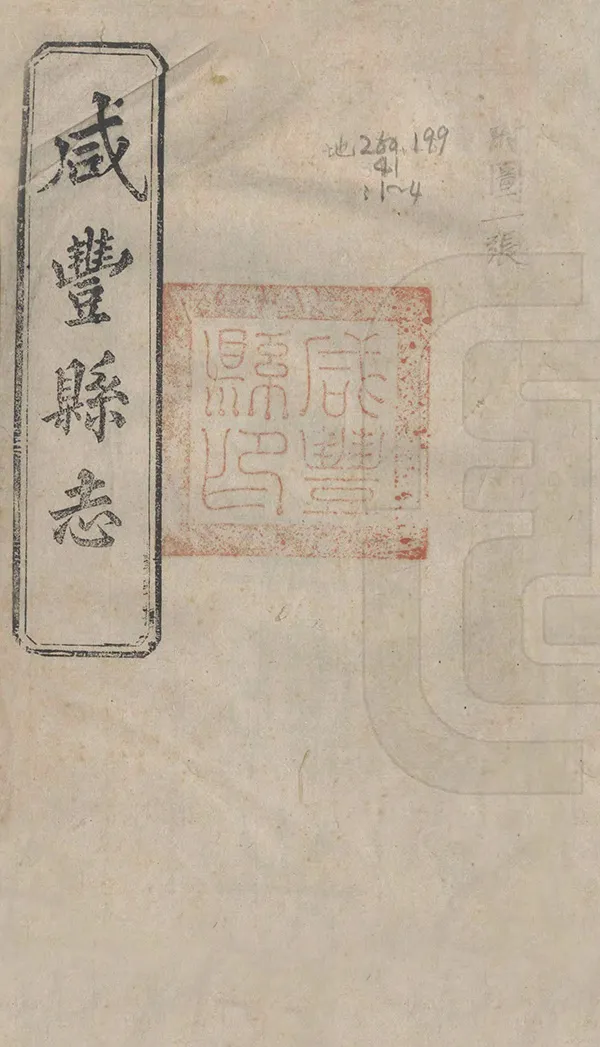 附圖一張
地260.199
41
:1~4
咸豐
縣印
咸豐縣志